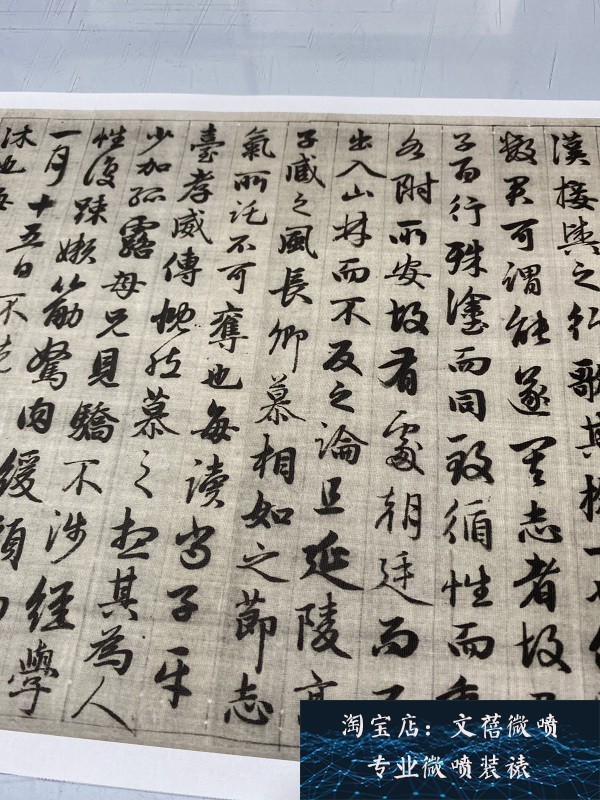 漢接輿之行歌其揆一
數君可謂能遂其志者故
子百行殊塗而同致循性而
各附所安故有處朝廷而不
出入山林而不反之論且延陵高
子臧之風長卿慕相如之節志
氣所託不可奪也每讀尚子平
臺孝威傳慨然慕之想其為人
少加孤露母兄見驕不涉經學
性復疎嬾筋駑肉緩頭
一月十五日不洗
沐也每
淘宝店：文蓓微喷
专业微喷装裱